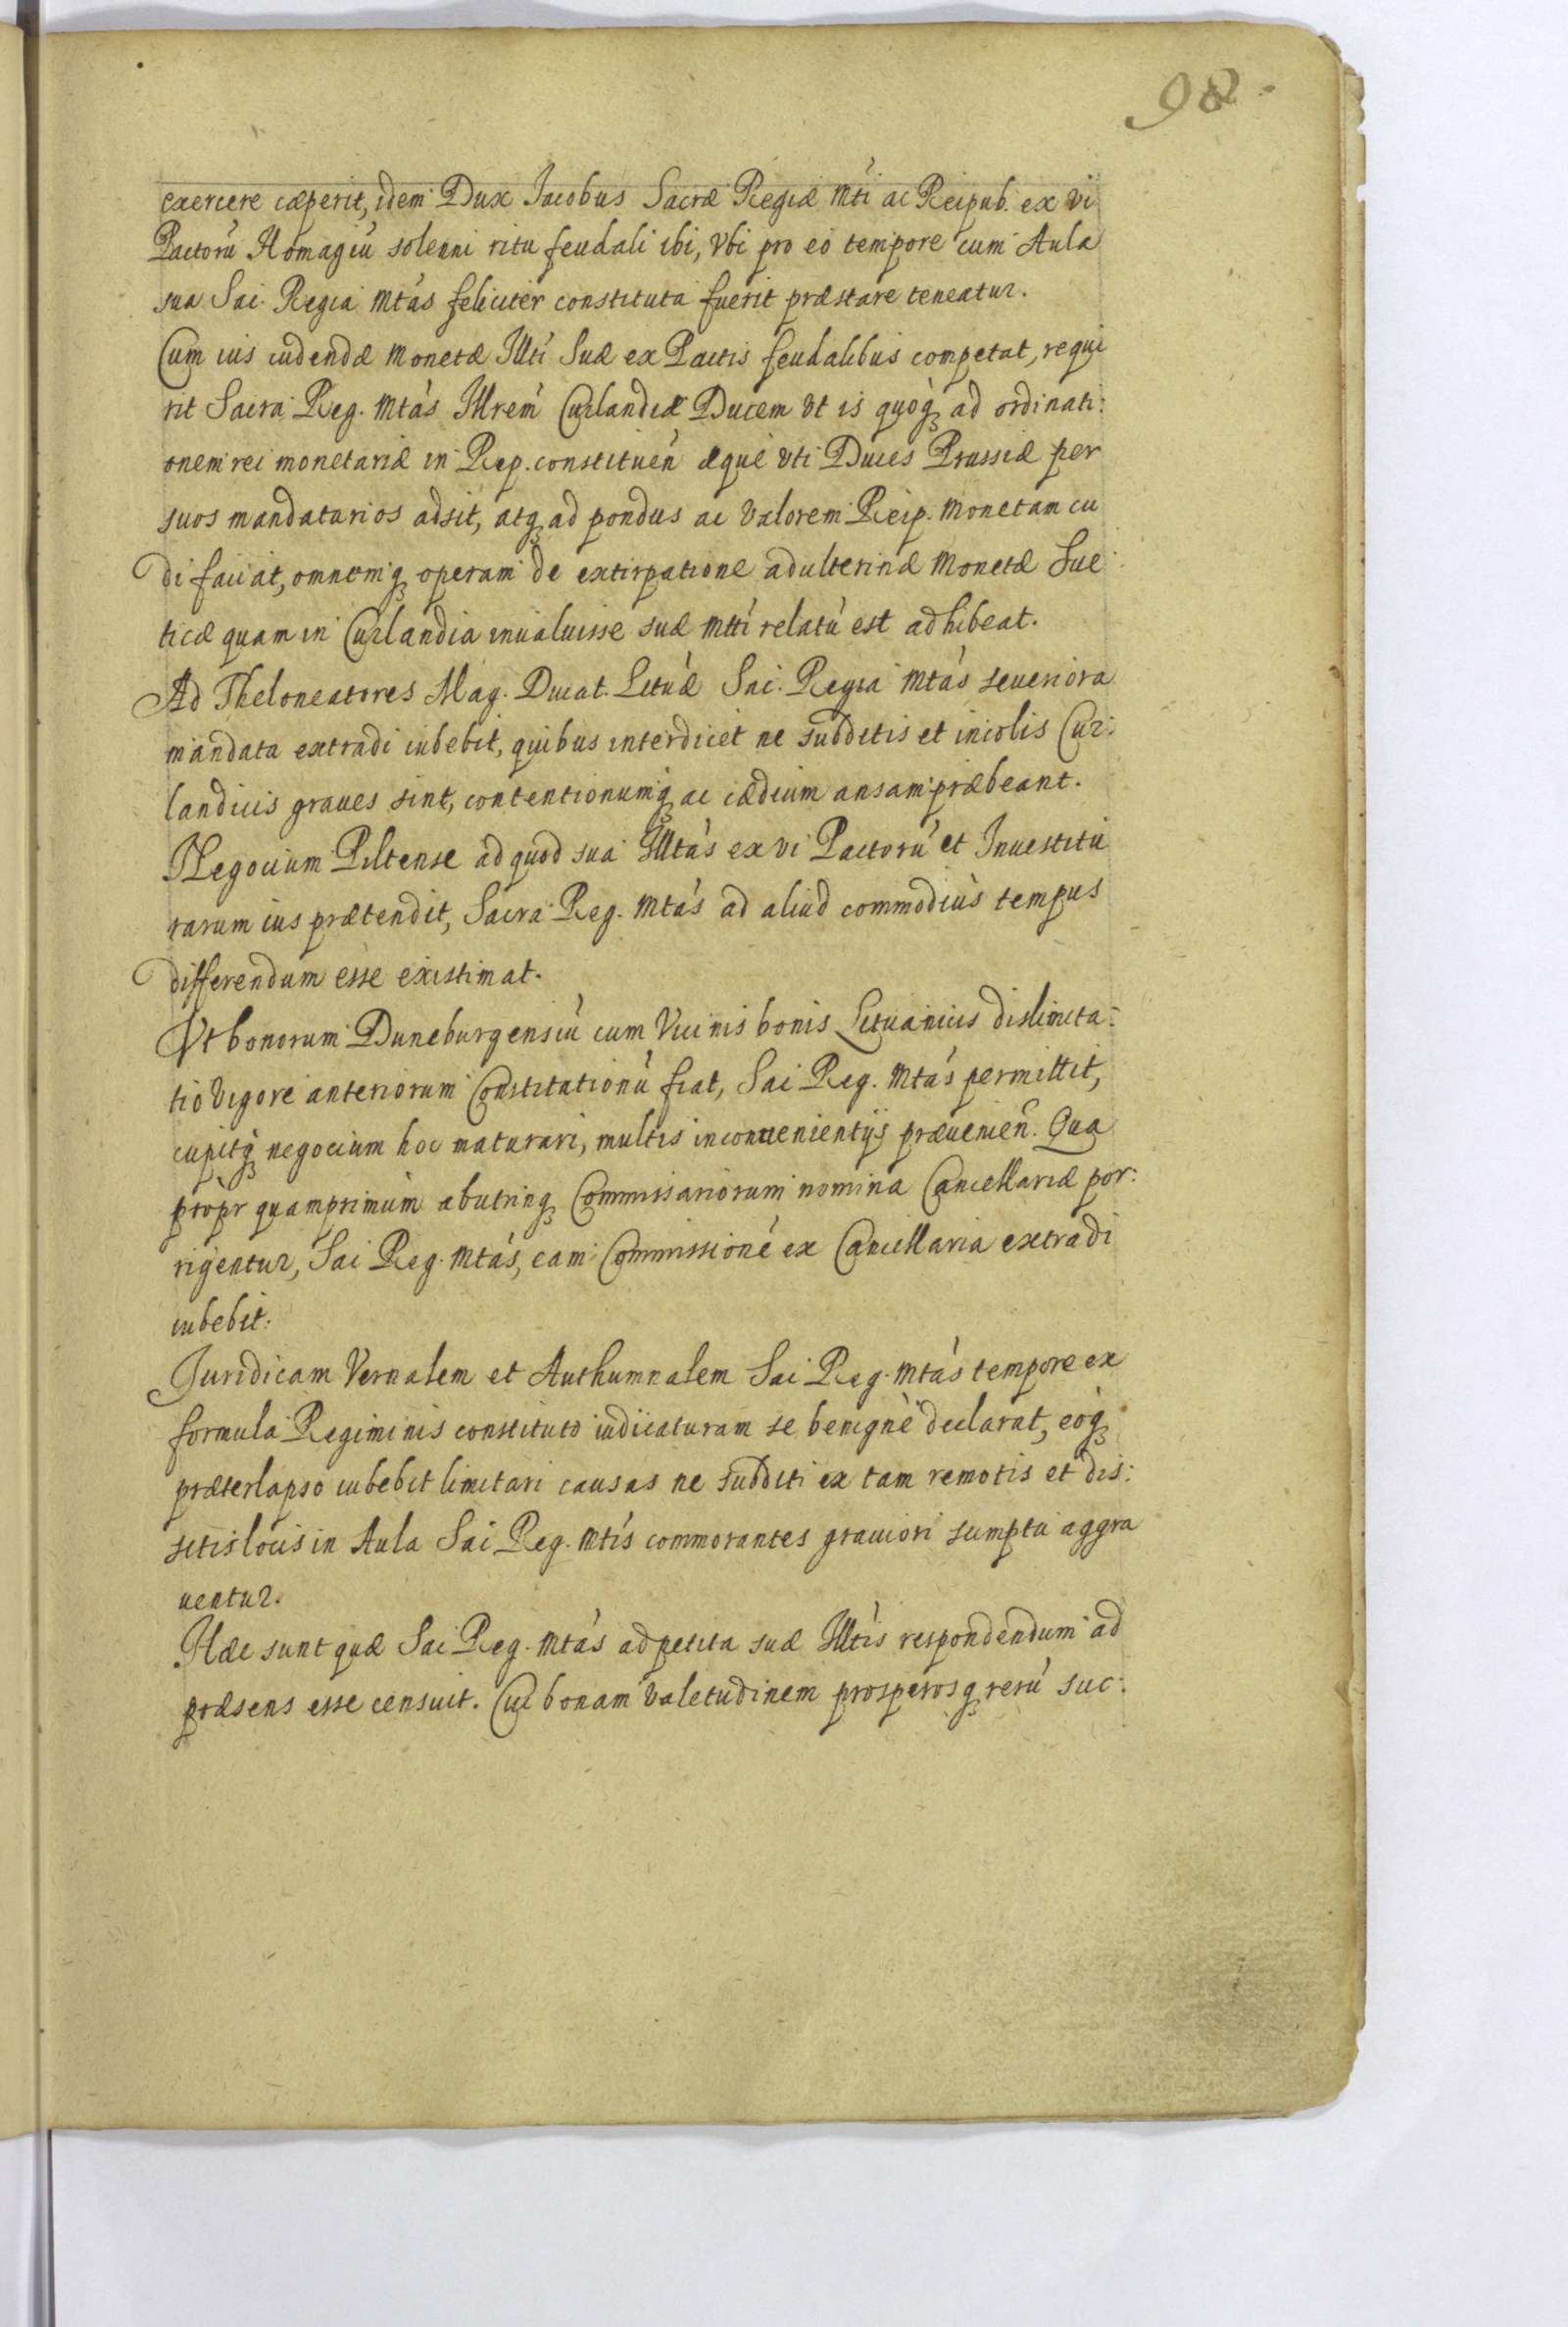 98.
exercere cæperit, idem Dux Jacobus Sacræ Regiæ Mti ac Reipub. ex vi
Pactorũ Homagiũ solenni ritu feudali ibi, Vbi pro eo tempore cum Aula
sua Sac. Regia Mtas feliciter constituta fuerit præstare teneatur.
Cum ius cudendæ Monetæ Illti Suæ ex Pactis feudalibus competat, requi
rit Sacra Reg. Mtas Illrem Curlandiæ Ducem vt is quoq̃ ad ordinati:
onem rei monetariæ in Rep. constituen̄ æque vti Duces Prussiæ per
suos mandatarios adsit, atq̃ ad pondus ac Valorem Reip. Monetam cu
di faciat, omnemq̃ operam de extirpatione adulterinæ Monetæ Sue
ticæ quam in Curlandia inualuisse suæ Mtti relatũ est adhibeat.
Ad Theloneatores Mag. Ducat. Lituæ Sac. Regia Mtas seueriora
mandata extradi iubebit, quibus interdicet ne subditis et incolis Cur:
landicis graues sint, contentionumq̃ ac cædium ansam præbeant.
Negocium Piltense ad quod sua Illtas ex vi Pactorũ et Inuestitu
rarum ius prætendit, Sacra Reg. Mtas ad aliud commodius tempus
differendum esse existimat.
Vt bonorum Duneburgensiũ cum Vicinis bonis Lituanicis dislimita:
tio Vigore anteriorum Constitutionũ fiat, Sac Reg. Mtas permittit,
cupitq̃ negocium hoc maturari, multis inconuenientijs præuenien̄. Qua
propr quamprimum abutrinq̃ Commissariorum nomina Cancellariæ por:
rigentur, Sac Reg. Mtas, eam Commissionẽ ex Cancellaria extradi
iubebit.
Juridicam Vernalem et Authumnalem Sac Reg. Mtas tempore ex
formula Regiminis constituto iudicaturam se benignè declarat, eoq̃
præterlapso iubebit limitari causas ne subditi ex tam remotis et dis:
sitis locis in Aula Sac Reg. Mtis commorantes grauiori sumptu aggra
uentur.
Hæc sunt quæ Sac Reg. Mtas ad petita suæ Illtis respondendum ad
præsens esse censuit. Cui bonam Valetudinem prosperosq̃ rerũ suc: